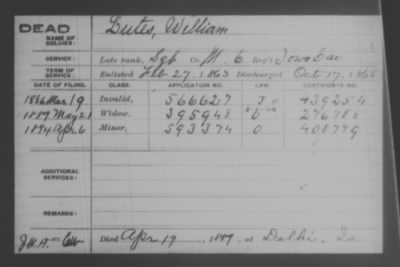 DEAD
NAME OF SOLDIER: Dutes, William
SERVICE: Late rank, Sgt Co. M, 6 Reg't Iowa Cav
TERM OF SERVICE: Enlisted Feb 27, 1863 Discharged Oct 17, 1865
DATE OF FILING. CLASS. APPLICATION NO. LAW. CERTIFICATE NO.
1886 Mar 19 Invalid, 566627 439254
1889 May 21 Widow, 395948 276788
1894 Apr 6 Minor, 593374 408779
ADDITIONAL SERVICES:
REMARKS:
Died Apr 19, 1889, at Delhi, Ia